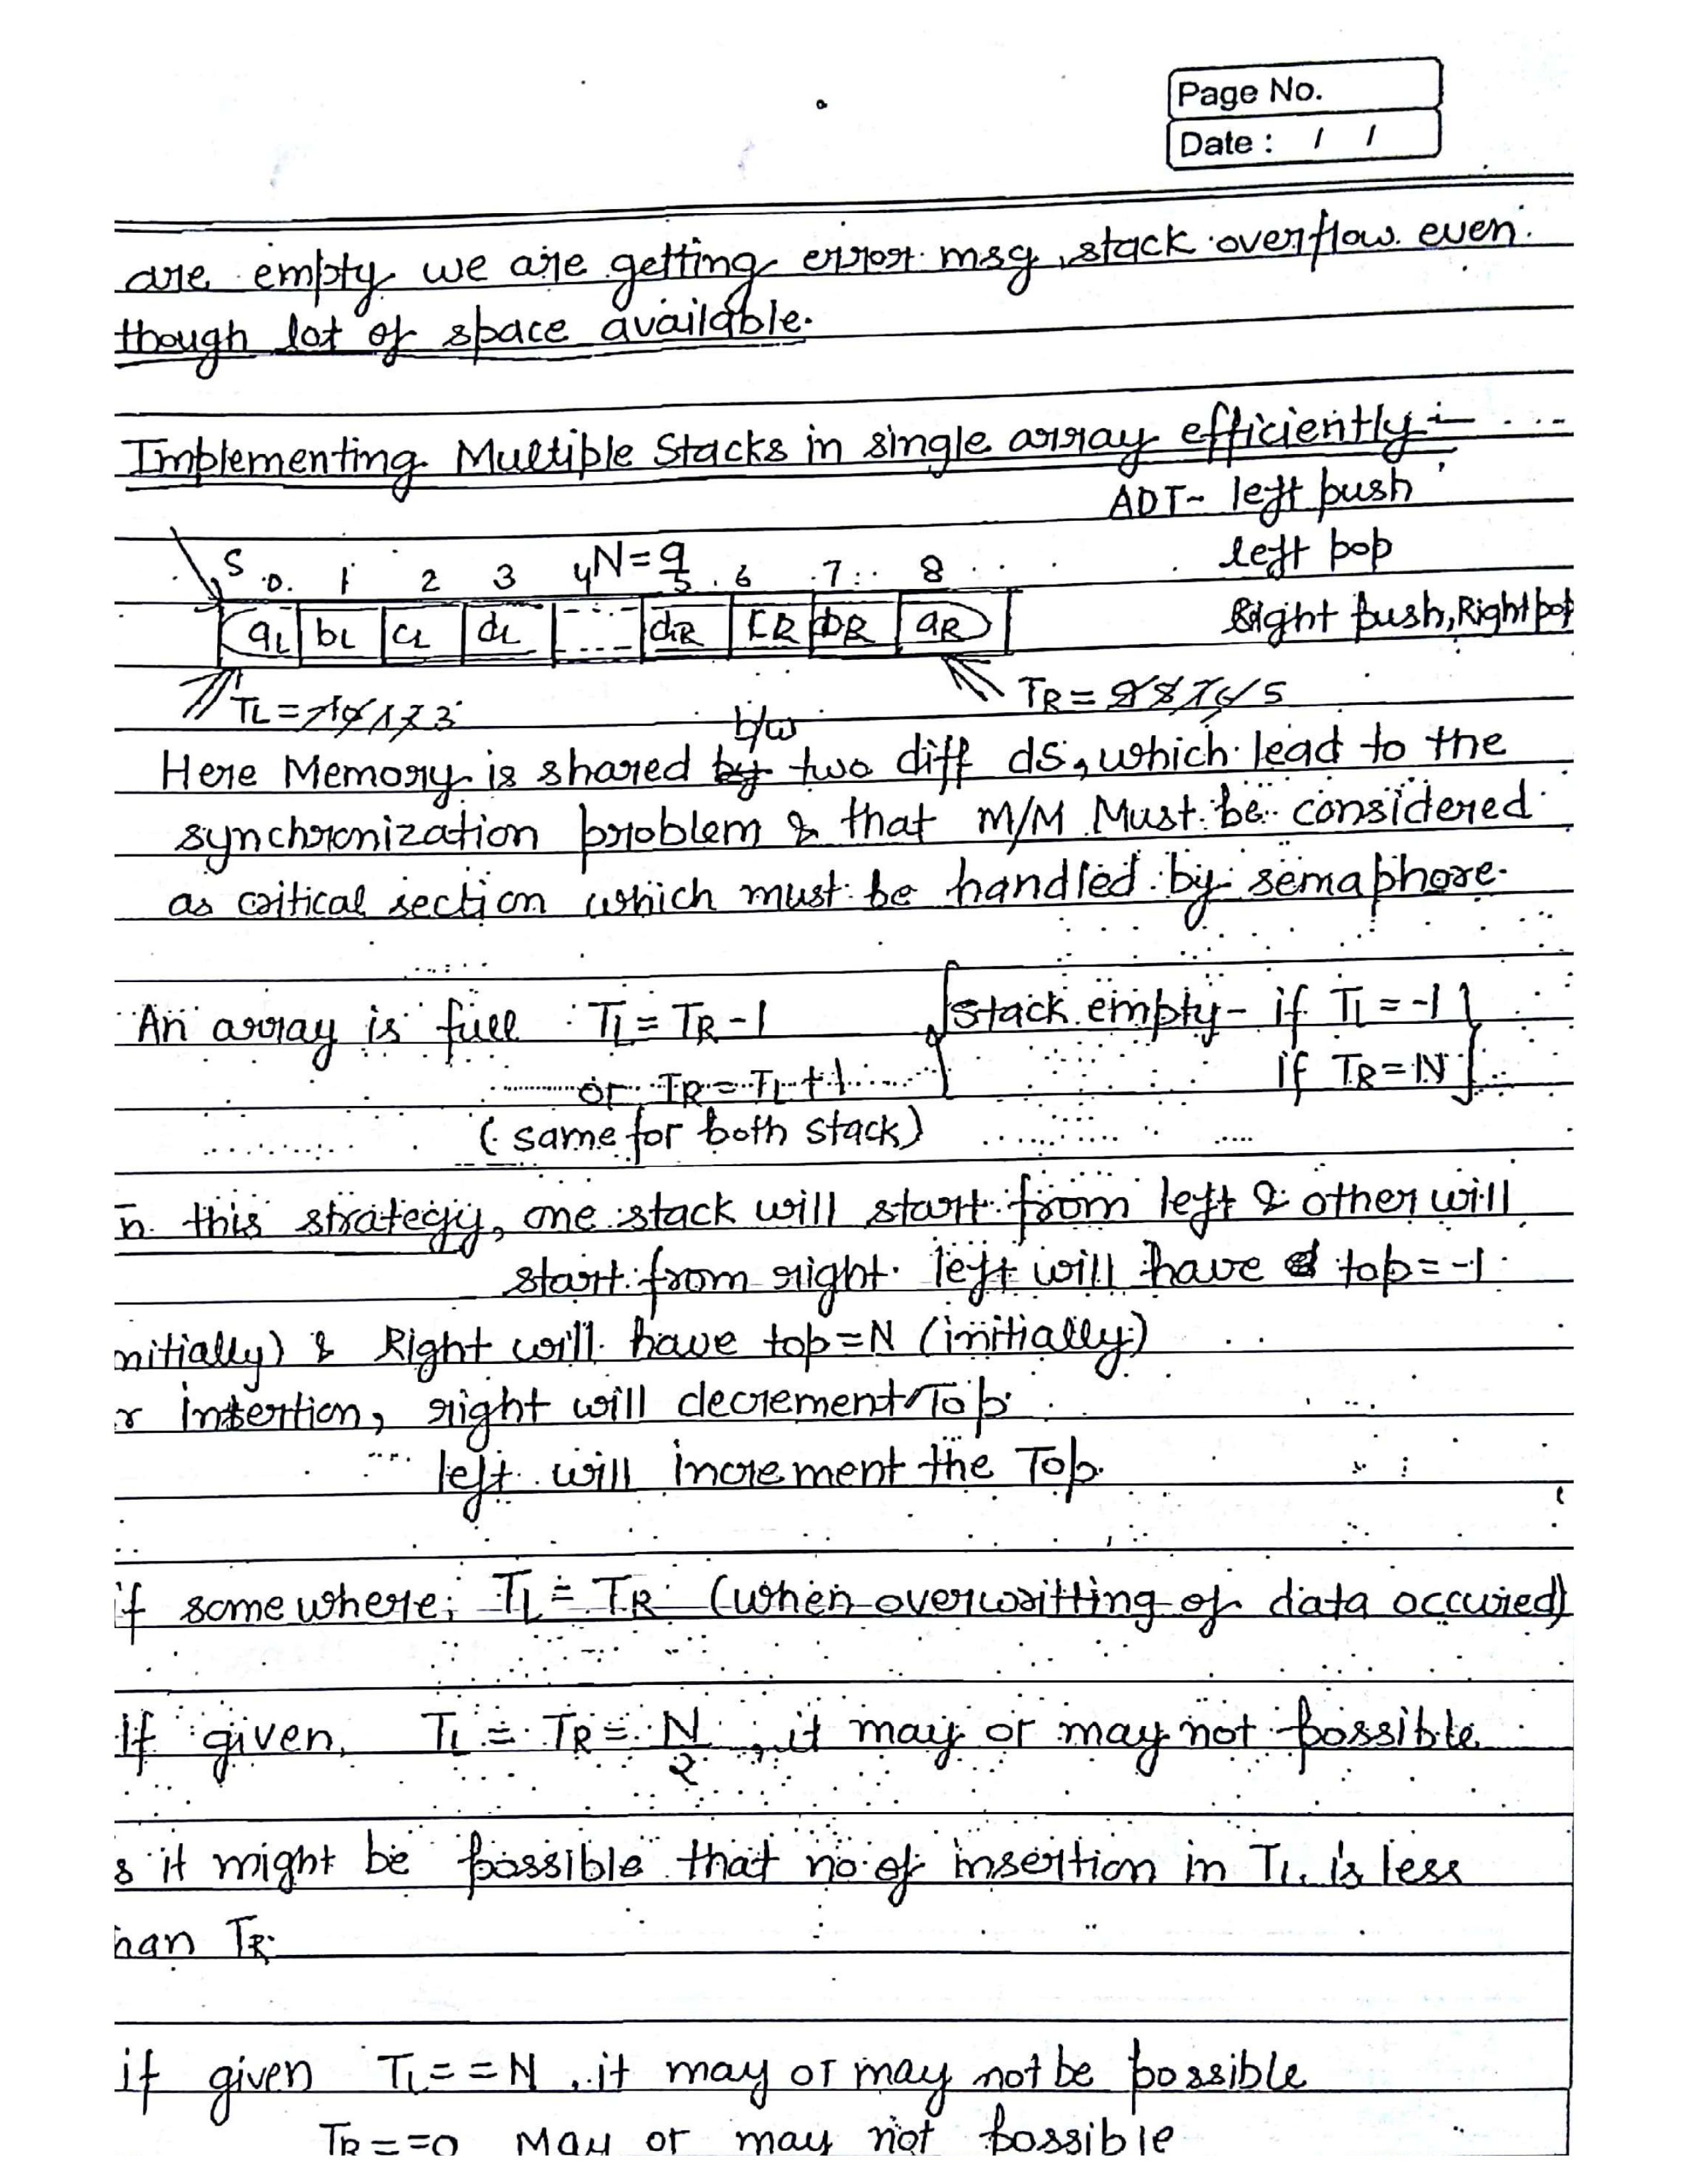 Page No.
Date : / /
are empty we are getting error msg, stack overflow even
though lot of space available.
Implementing Multiple Stacks in single array efficiently :- ....
ADT- left push
left pop
Right push, Right pop
S N=9
0. 1 2 3 4 5 6 7 8
aL bL cL dL dR CR bR aR
TL = -1 0 1 2 3
TR = 9 8 7 6 5
b/w
Here Memory is shared by two diff ds, which lead to the
synchronization problem & that M/M Must be considered
as critical section which must be handled by semaphore.
An array is full : TL = TR - 1
or TR = TL + 1
(same for both stack)
Stack empty - if TL = -1
if TR = N
n this strategy, one stack will start from left & other will
start from right. left will have top = -1
nitially) & Right will have top = N (initially)
r insertion, right will decrement Top
left will increment the Top.
if somewhere; TL = TR (when overwritting of data occured)
If given, TL = TR = N/2, it may or may not possible
s it might be possible that no. of insertion in TL is less
han TR.
if given TL = = N, it may or may not be possible
TR = = 0 May or may not possible